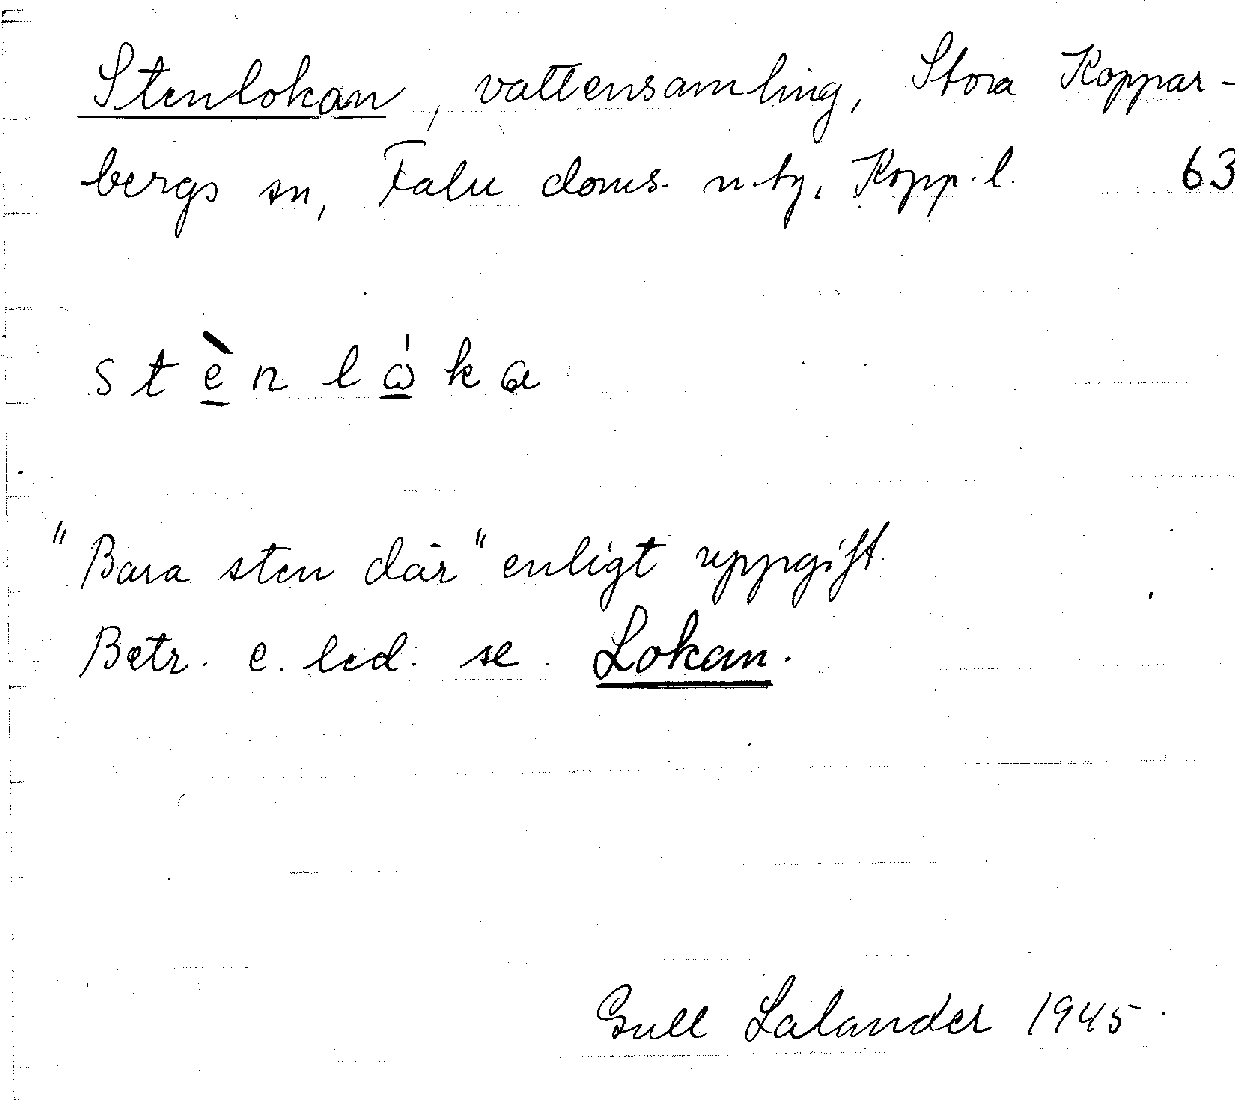 Stenlokan, vattensamling, Stora Koppar-
bergs sn, Falu doms. n. tg, Kopp. l. 63
stènlòka
"Bara sten där" enligt uppgift.
Betr. e. led. se. Lokan.
Gull Lalander 1945.